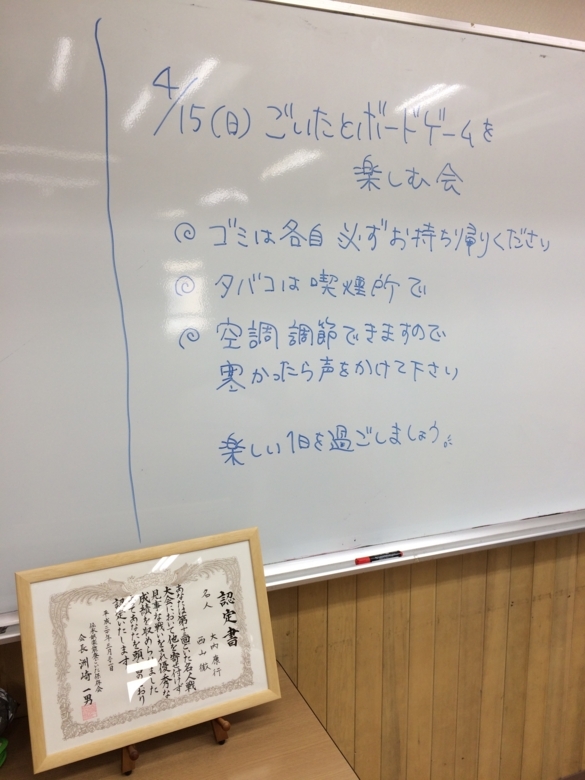 4/15(日) ごいたとボードゲームを
楽しむ会
ゴミは各自 必ずお持ち帰りください
タバコは喫煙所で
空調調節できますので
寒かったら声をかけて下さい
楽しい1日を過ごしましょう。
認定書
名人
大内 康行
西山 徹
あなたは第十回ごいた名人戦
大会において他を寄せ付けず
見事な戦いをされ優秀な
成績を収められました
認定いたします
会長 洲崎 一男